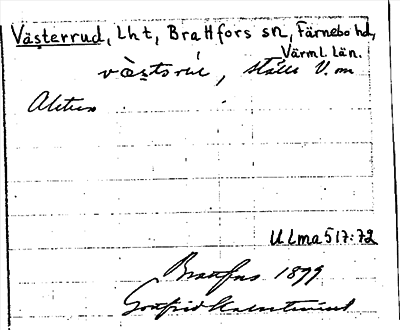 Västerrud, Lht, Brattfors sn, Färnebo hd,
Värml. län.
ställe V. om
Alstern
Ulma 517:72
Brattfors 1899
Gottfrid Kallstenius